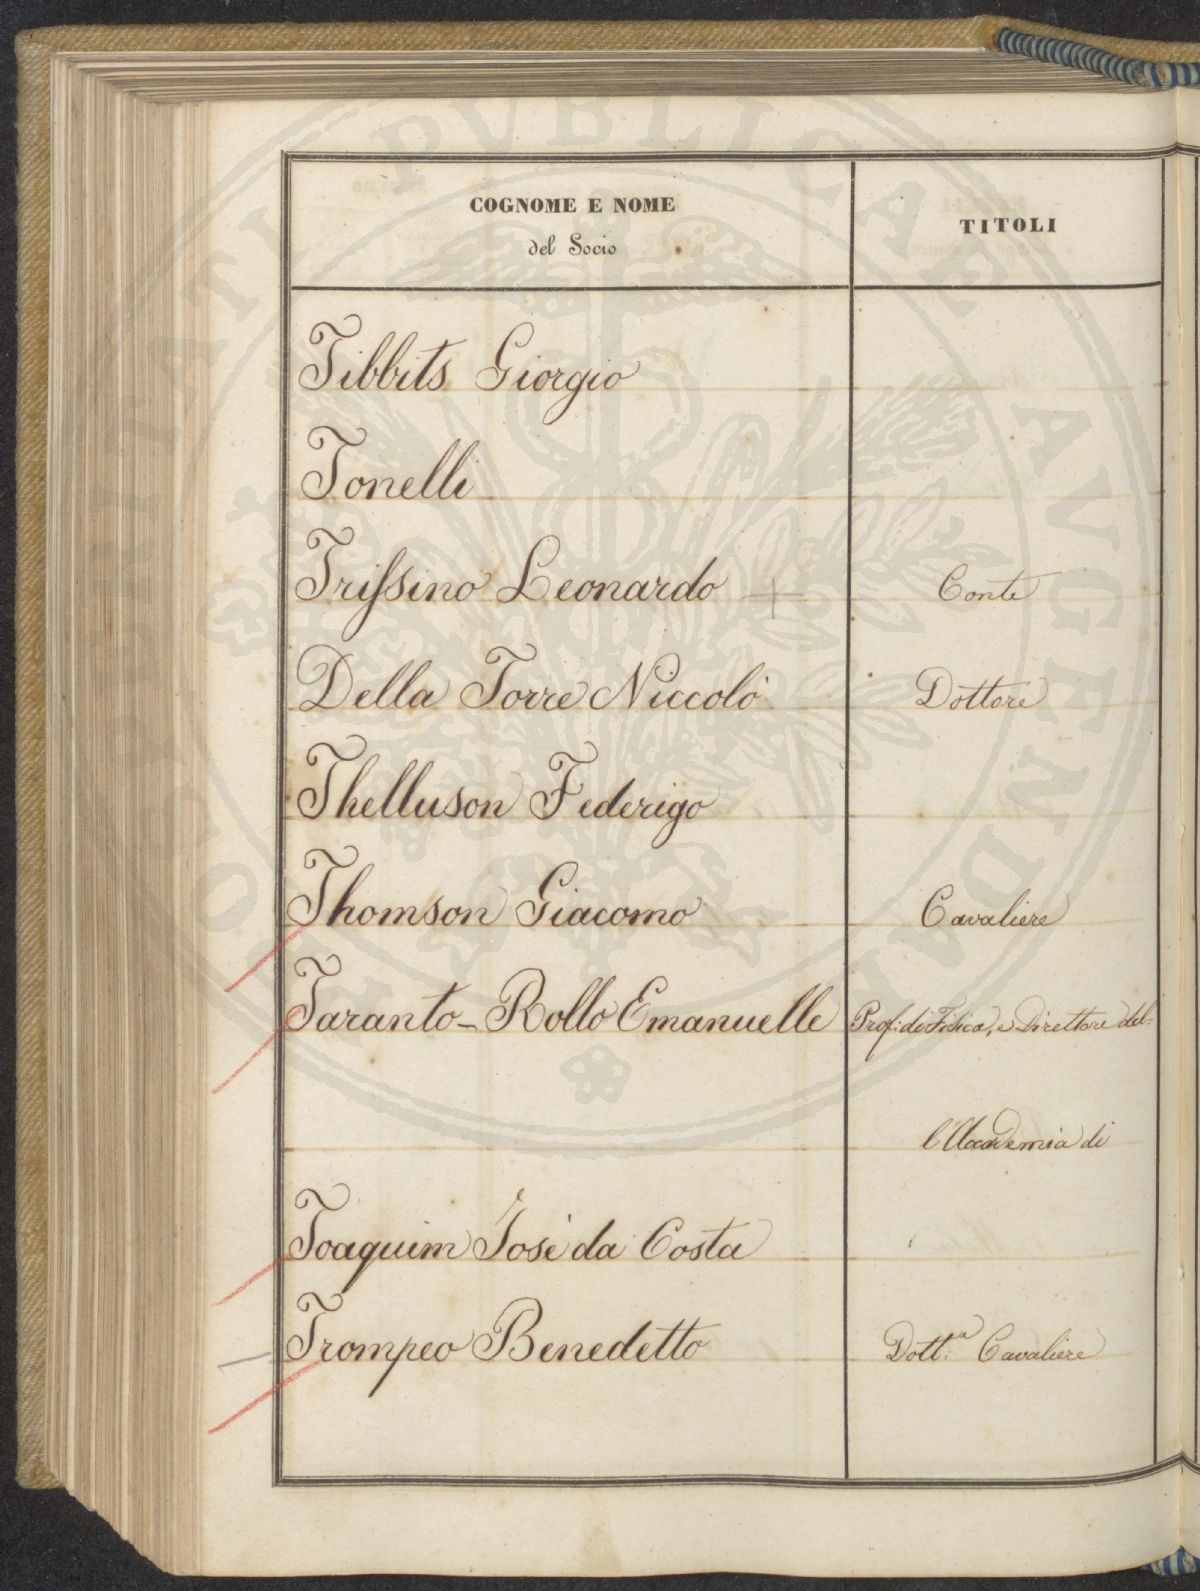 COGNOME E NOME
del Socio
TITOLI
Tibbits Giorgio
Tonelli
Trissino Leonardo
Conte
Della Torre Niccolò
Dottore
Thelluson Federigo
Thomson Giacomo
Cavaliere
Taranto-Rollo Emanuelle
Prof: di Fisica, e Direttore del-
l'Accademia di
Toaquim José da Costa
Trompeo Benedetto
Dott: Cavaliere
PUBLICAE AUGENDAE